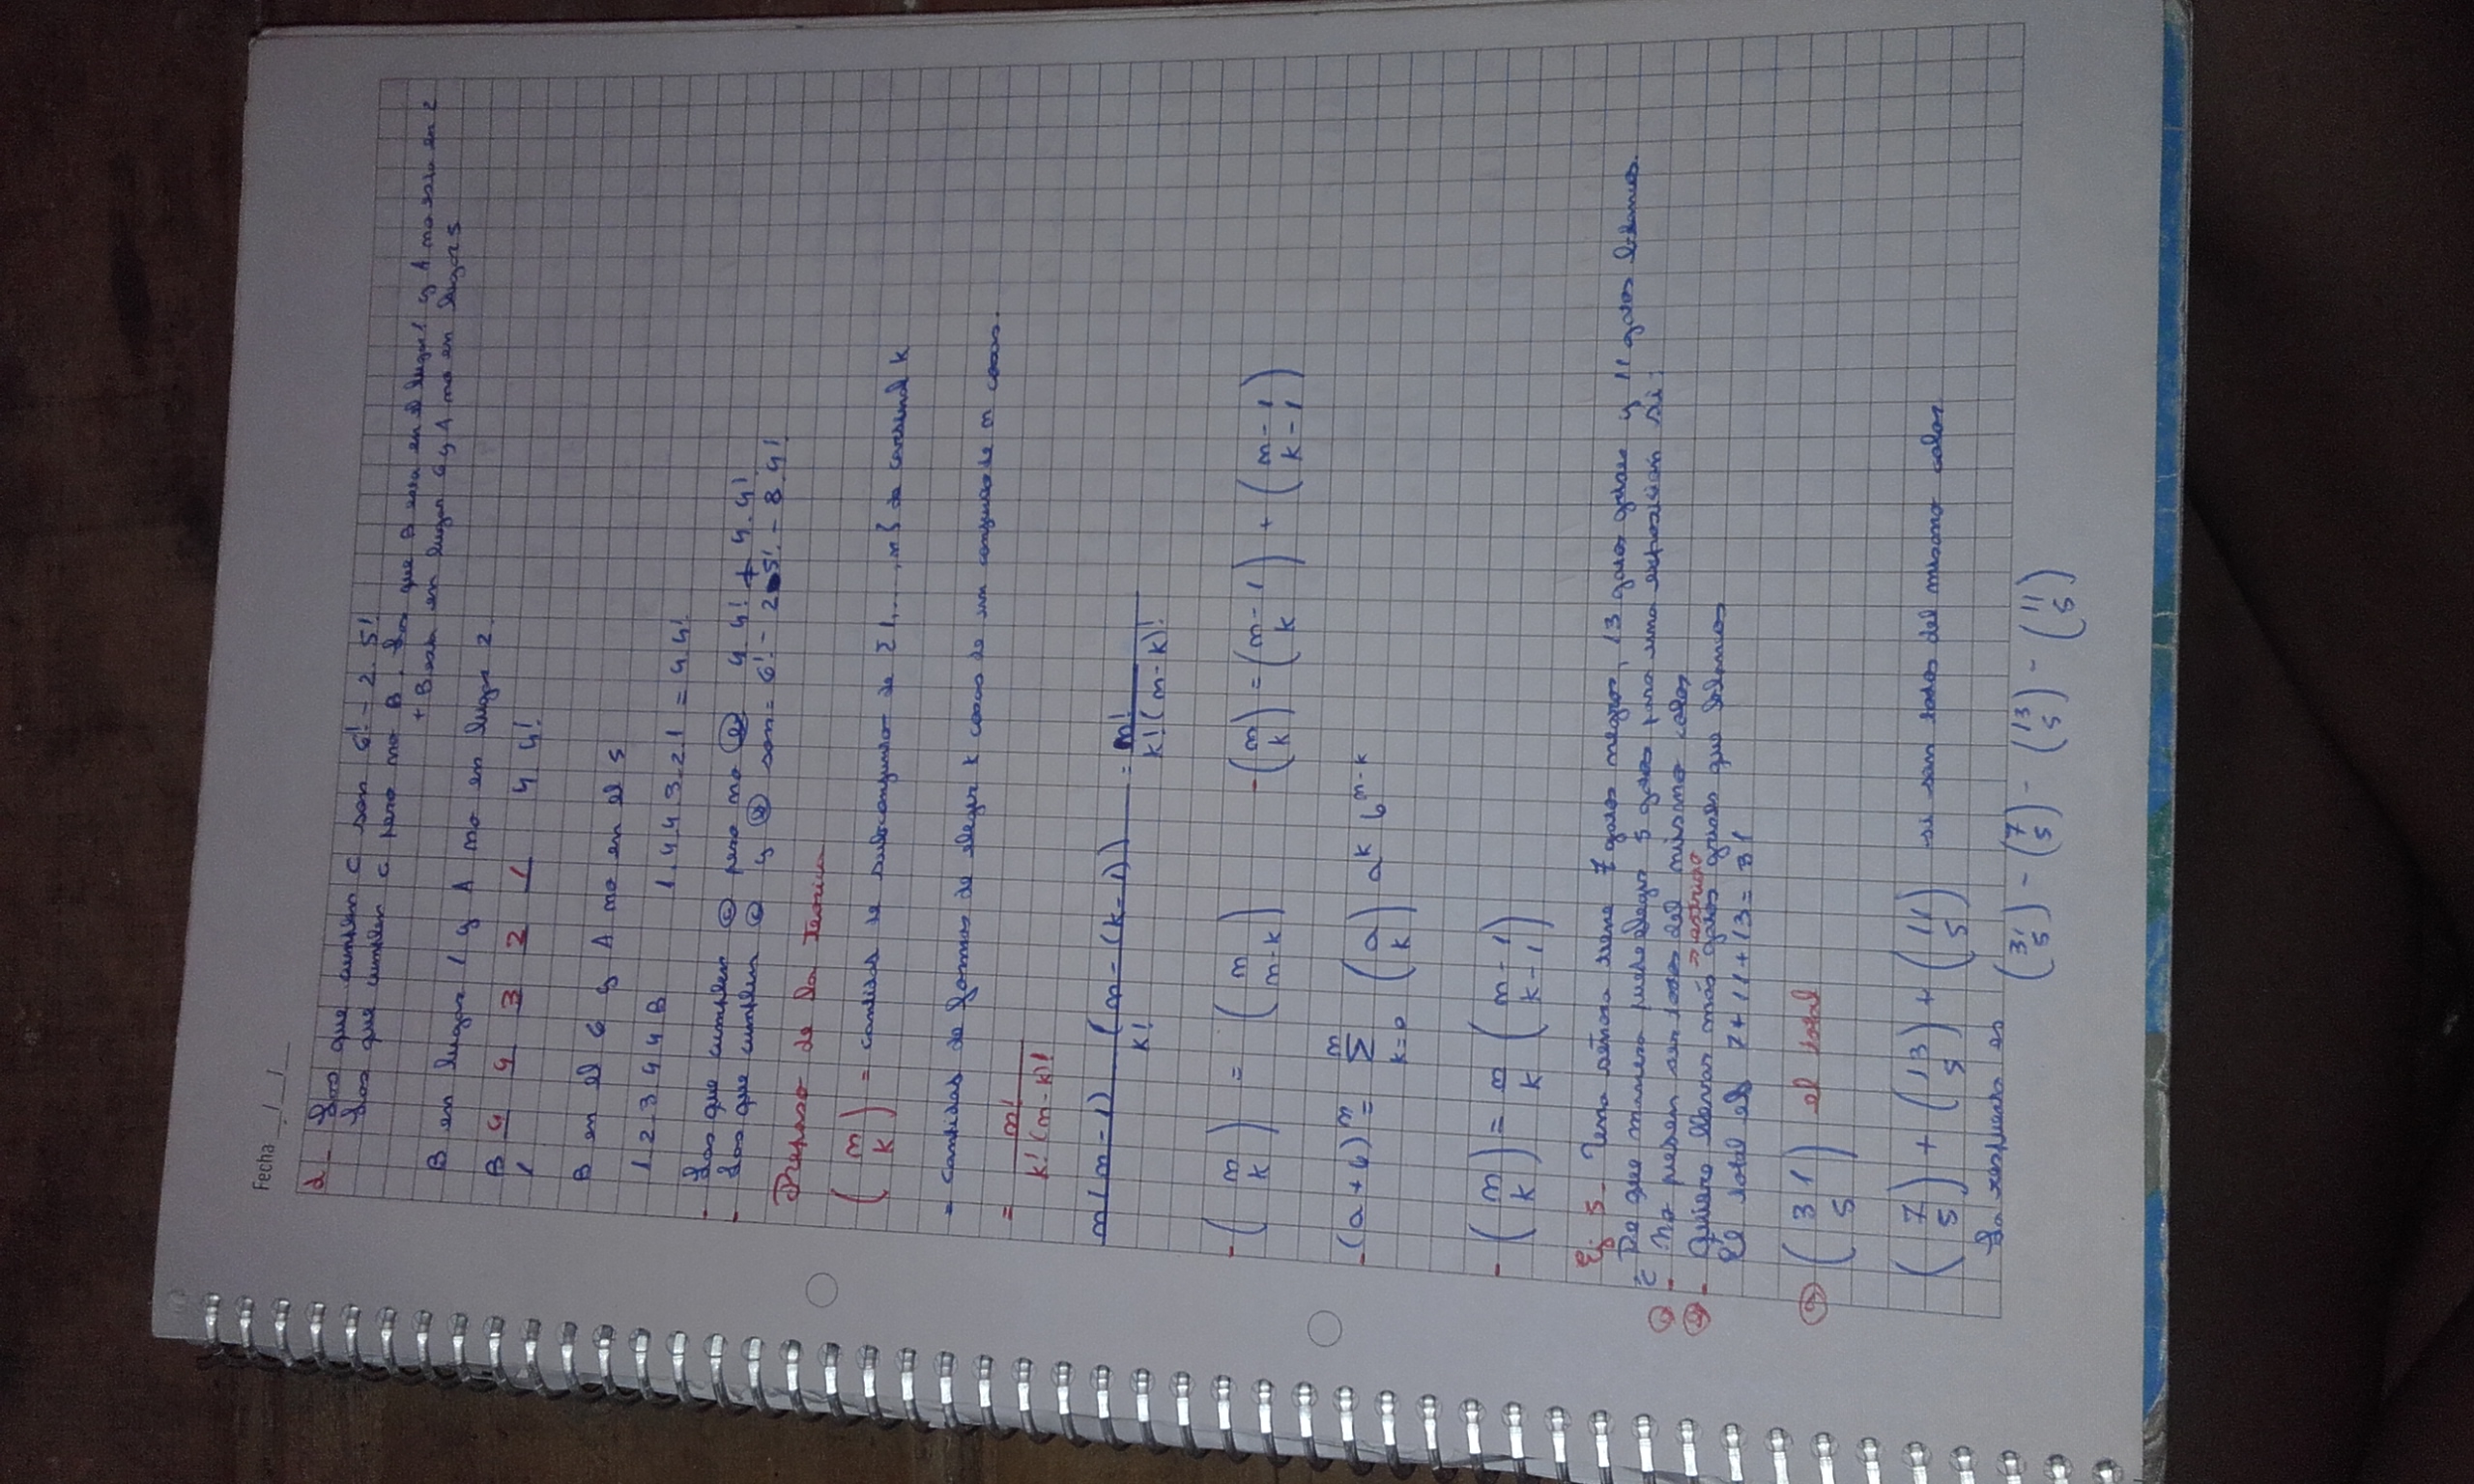 Fecha __/__/__
d - Los que cumplen C son 6! - 2. 5!
Los que cumplen C pero no B. Los que B esta en el lugar 1 y A no esta en 2
+ B esta en lugar 6 y A no en lugar 5
B en lugar 1 y A no en lugar 2.
B 4 4 3 2 1 4 4!
1
B en el 6 y A no en el 5
1 2 3 4 4 B 1. 4 4 3. 2 1 = 4.4!
- Los que cumplen C pero no B 4. 4! + 4. 4!
- Los que cumplen C y B son = 6! - 2 5! - 8. 4!
Repaso de la teorica
( m k ) = cantidad de subconjuntos de { 1, ..., n } de cardinal k
= cantidad de formas de elegir k cosas de un conjunto de n cosas.
= m! / k! (m - k)!
m (m - 1) (m - (k - 1)) / k! = m! / k! (m - k)!
- ( m k ) = ( m m-k ) - ( m k ) = ( m - 1 k ) + ( m - 1 k - 1 )
- (a + b)^m = Σ m k=0 ( a k ) a^k b^m-k
- ( m k ) = m k ( m - 1 k - 1 )
Ej 5 - Una señora tiene 7 gatos negros, 13 gatos grises y 11 gatos blancos.
¿ De que manera puede elegir 5 gatos para una exposición si:
- No pueden ser todos del mismo color
- Quiere llevar más gatos grises que blancos
→ estricto
El total es 7 + 11 + 13 = 31
a ( 31 5 ) el total
( 7 5 ) + ( 13 5 ) + ( 11 5 ) si son todos del mismo color
La respuesta es ( 31 5 ) - ( 7 5 ) - ( 13 5 ) - ( 11 5 )